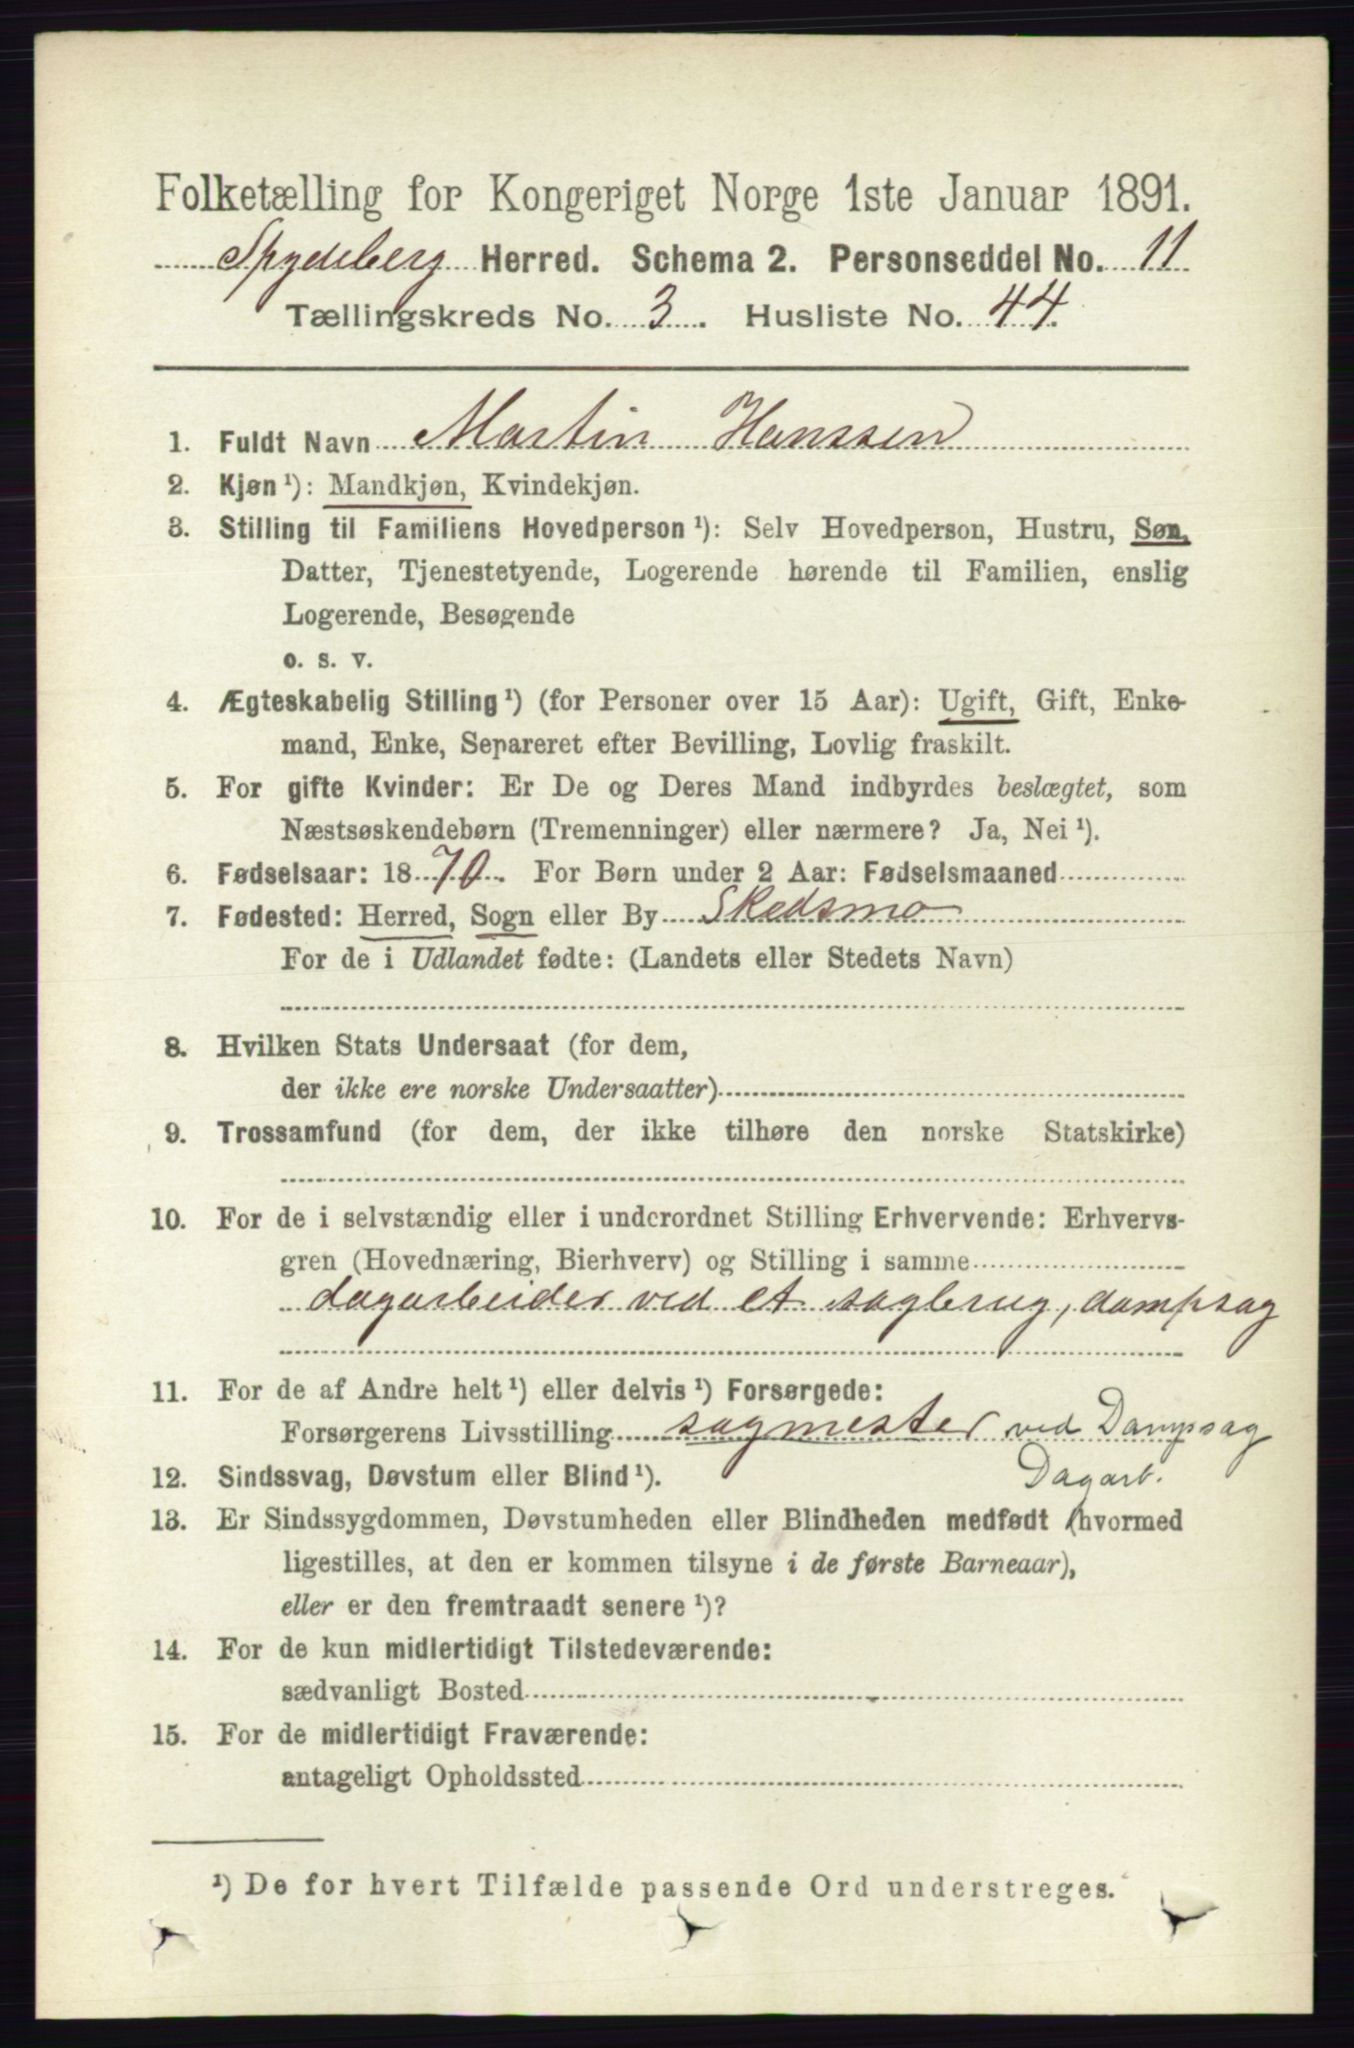 Folketælling for Kongeriget Norge 1ste Januar 1891.
Spydeberg Herred. Schema 2. Personseddel No. 11
Tællingskreds No. 3. Husliste No. 44.
1. Fuldt Navn Martin Hanssen
2. Kjøn ¹): Mandkjøn, Kvindekjøn.
3. Stilling til Familiens Hovedperson ¹): Selv Hovedperson, Hustru, Søn,
Datter, Tjenestetyende, Logerende hørende til Familien, enslig
Logerende, Besøgende
o. s. v.
4. Ægteskabelig Stilling ¹) (for Personer over 15 Aar): Ugift, Gift, Enke-
mand, Enke, Separeret efter Bevilling, Lovlig fraskilt.
5. For gifte Kvinder: Er De og Deres Mand indbyrdes beslægtet, som
Næstsøskendebørn (Tremenninger) eller nærmere? Ja, Nei ¹).
6. Fødselsaar: 1870. For Børn under 2 Aar: Fødselsmaaned
7. Fødested: Herred, Sogn eller By Skedsmo
For de i Udlandet fødte: (Landets eller Stedets Navn)
8. Hvilken Stats Undersaat (for dem,
der ikke ere norske Undersaatter)
9. Trossamfund (for dem, der ikke tilhøre den norske Statskirke)
10. For de i selvstændig eller i underordnet Stilling Erhvervende: Erhvervs-
gren (Hovednæring, Bierhverv) og Stilling i samme
dagarbeider ved et sagbrug, dampsag
11. For de af Andre helt ¹) eller delvis ¹) Forsørgede:
Forsørgerens Livsstilling sagmester ved Dampsag
12. Sindssvag, Døvstum eller Blind ¹). Dagarb.
13. Er Sindssygdommen, Døvstumheden eller Blindheden medfødt (hvormed
ligestilles, at den er kommen tilsyne i de første Barneaar),
eller er den fremtraadt senere ¹)?
14. For de kun midlertidigt Tilstedeværende:
sædvanligt Bosted
15. For de midlertidigt Fraværende:
antageligt Opholdssted
¹) De for hvert Tilfælde passende Ord understreges.